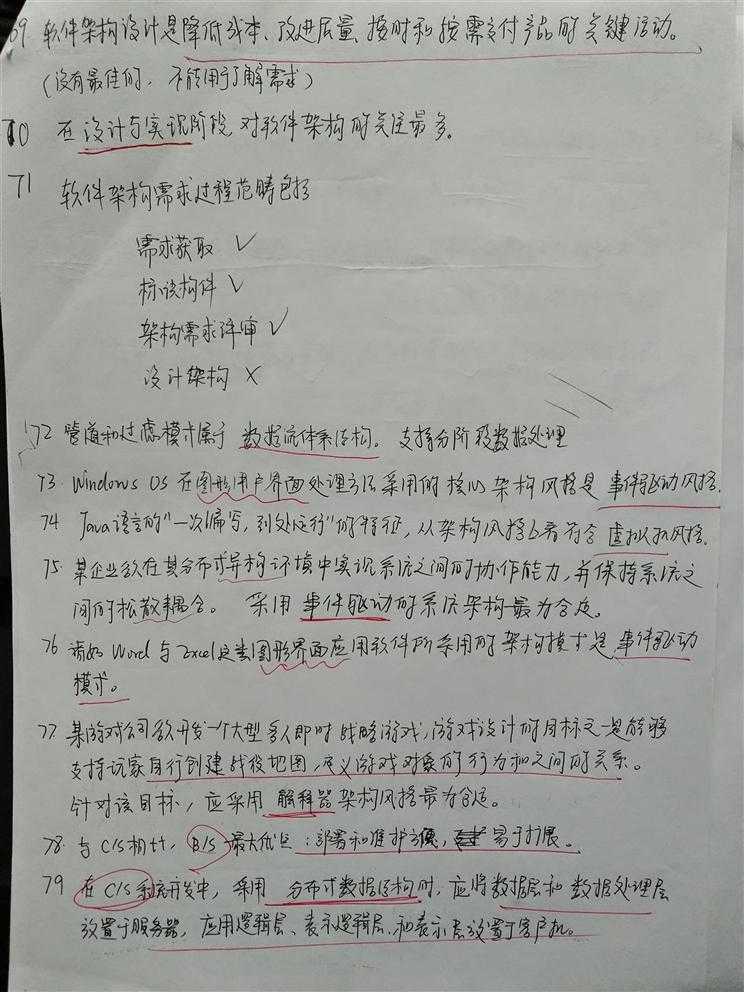 69 软件架构设计是降低成本、改进质量、按时和按需交付产品的关键活动。
(没有最佳的，不能用于了解需求)
70 在设计与实现阶段，对软件架构的关注最多。
71 软件架构需求过程范畴包括
需求获取 ✓
标识构件 ✓
架构需求评审 ✓
设计架构 ×
72 管道和过滤模式属于 数据流体系结构。 支持分阶段数据处理
73. Windows OS 在图形用户界面处理方法采用的核心架构风格是 事件驱动风格.
74 Java语言的"一次编写，到处运行"的特征，从架构风格上看符合 虚拟机风格.
75. 某企业欲在其分布式异构环境中实现系统之间的协作能力，并保持系统之
间的松散耦合。 采用 事件驱动的系统架构最为合适。
76 诸如 Word 与 Excel这类图形界面应用软件所采用的架构模式是 事件驱动
模式。
77 某游戏公司欲开发一个大型多人即时战略游戏，游戏设计的目标之一是能够
支持玩家自行创建战役地图，定义游戏对象的行为和之间的关系。
针对该目标，应采用 解释器架构风格最为合适。
78. 与C/S相比，B/S 最大优点：部署和维护方便， 易于扩展。
79 在C/S系统开发中，采用 分布式数据结构时，应将数据层和数据处理层
放置于服务器，应用逻辑层、表示逻辑层、和表示层放置于客户机。